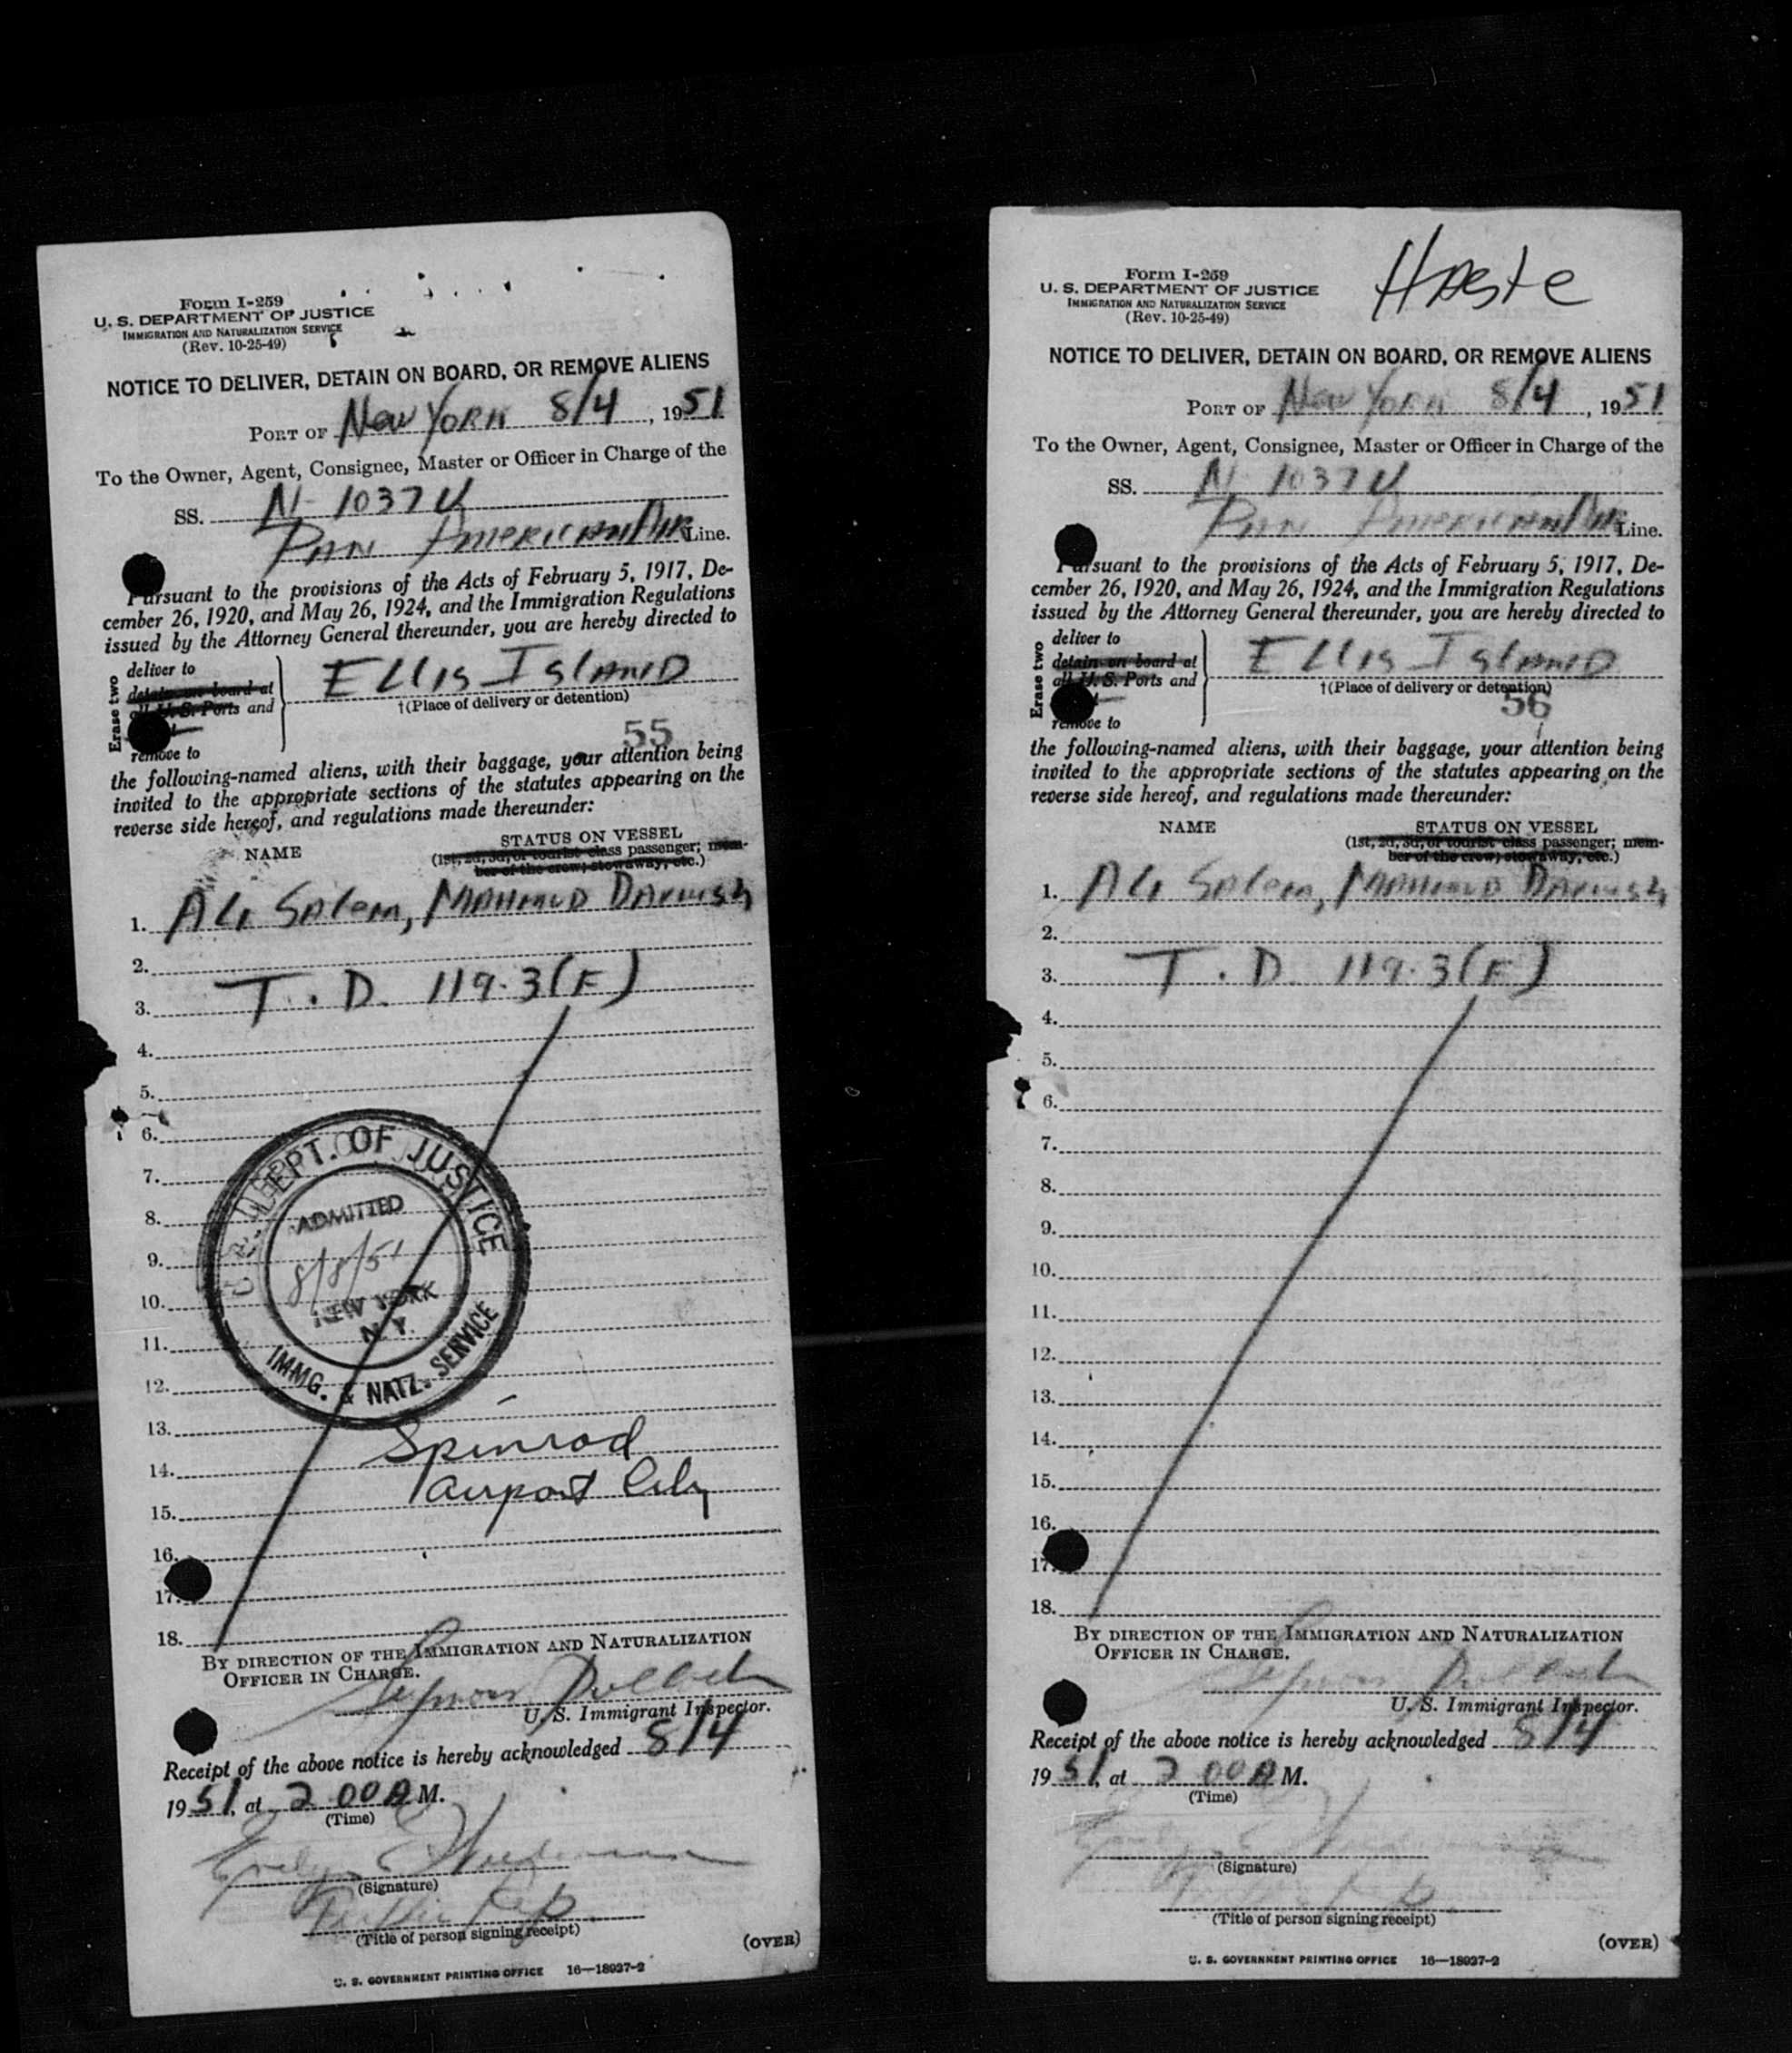 Form I-259
U. S. DEPARTMENT OF JUSTICE
IMMIGRATION AND NATURALIZATION SERVICE
(Rev. 10-25-49)
NOTICE TO DELIVER, DETAIN ON BOARD, OR REMOVE ALIENS
PORT OF New York 8/4, 1951
To the Owner, Agent, Consignee, Master or Officer in Charge of the
SS. N 1037 U
Pan American Air Line.
Pursuant to the provisions of the Acts of February 5, 1917, De-
cember 26, 1920, and May 26, 1924, and the Immigration Regulations
issued by the Attorney General thereunder, you are hereby directed to
Erase two
deliver to
detain on board at
all U. S. Ports and
remove to
Ellis Island
†(Place of delivery or detention)
55
the following-named aliens, with their baggage, your attention being
invited to the appropriate sections of the statutes appearing on the
reverse side hereof, and regulations made thereunder:
NAME
STATUS ON VESSEL
(1st, 2d, 3d, or tourist class passenger; mem-
ber of the crew; stowaway, etc.)
1. Ali Salem, Mahmud Darwish
2.
3. T. D. 119.3(F)
4.
5.
6.
7.
8.
9.
10.
11.
12.
13.
14.
15.
16.
17.
18.
U. S. DEPT. OF JUSTICE
ADMITTED
8/8/51
NEW YORK
N. Y.
IMMG. & NATZ. SERVICE
Spinrod
airport
BY DIRECTION OF THE IMMIGRATION AND NATURALIZATION
OFFICER IN CHARGE.
U. S. Immigrant Inspector.
Receipt of the above notice is hereby acknowledged 8/4
1951, at 2 00 A M.
(Time)
Evelyn
(Signature)
(Title of person signing receipt)
(OVER)
U. S. GOVERNMENT PRINTING OFFICE 16—18937-2
Haste
Form I-259
U. S. DEPARTMENT OF JUSTICE
IMMIGRATION AND NATURALIZATION SERVICE
(Rev. 10-25-49)
NOTICE TO DELIVER, DETAIN ON BOARD, OR REMOVE ALIENS
PORT OF New York 8/4, 1951
To the Owner, Agent, Consignee, Master or Officer in Charge of the
SS. N 1037 U
Pan American Air Line.
Pursuant to the provisions of the Acts of February 5, 1917, De-
cember 26, 1920, and May 26, 1924, and the Immigration Regulations
issued by the Attorney General thereunder, you are hereby directed to
Erase two
deliver to
detain on board at
all U. S. Ports and
remove to
Ellis Island
†(Place of delivery or detention)
56
the following-named aliens, with their baggage, your attention being
invited to the appropriate sections of the statutes appearing on the
reverse side hereof, and regulations made thereunder:
NAME
STATUS ON VESSEL
(1st, 2d, 3d, or tourist class passenger; mem-
ber of the crew; stowaway, etc.)
1. Ali Salem, Mahmud Darwish
2.
3. T. D. 119.3(F)
4.
5.
6.
7.
8.
9.
10.
11.
12.
13.
14.
15.
16.
17.
18.
BY DIRECTION OF THE IMMIGRATION AND NATURALIZATION
OFFICER IN CHARGE.
U. S. Immigrant Inspector.
Receipt of the above notice is hereby acknowledged 8/4
1951, at 2 00 A M.
(Time)
(Signature)
(Title of person signing receipt)
(OVER)
U. S. GOVERNMENT PRINTING OFFICE 16—18937-2